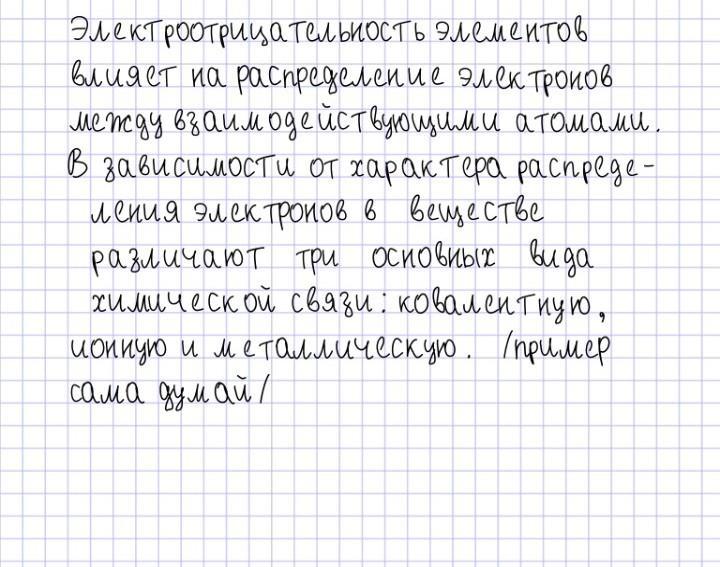 Электроотрицательность элементов
влияет на распределение электронов
между взаимодействующими атомами.
В зависимости от характера распреде-
ления электронов в веществе
различают три основных вида
химической связи: ковалентную,
ионную и металлическую. /пример
сама думай/